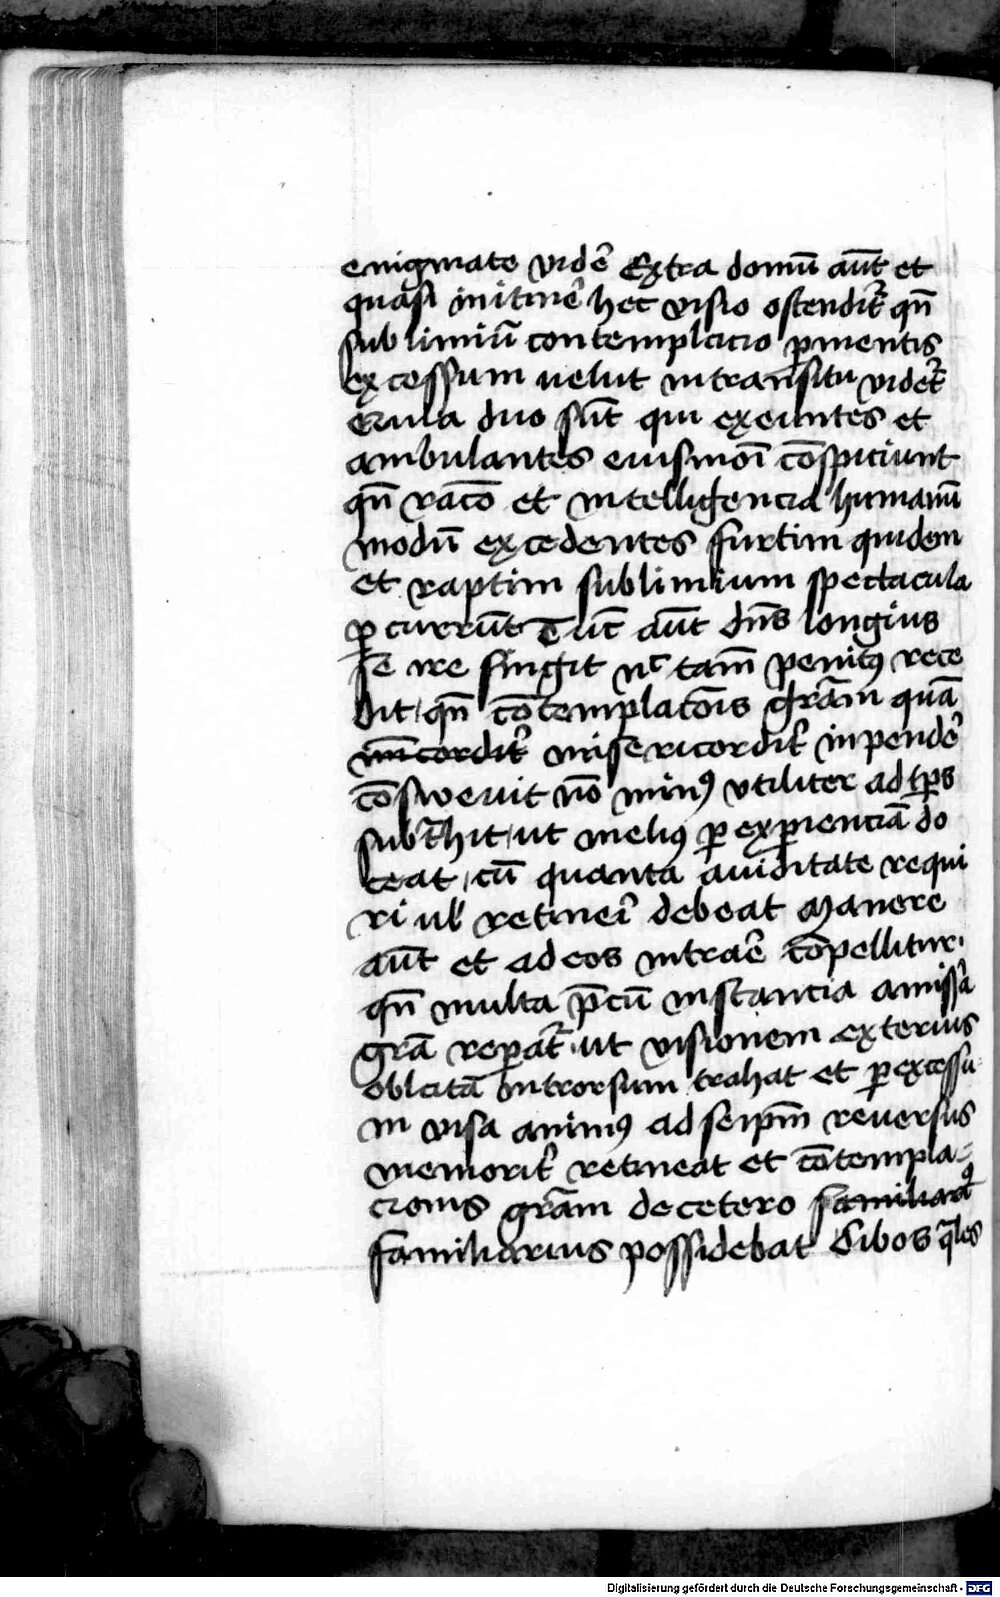 enigmate vidē Extra domū aūt et
quasi initinē hec visio ostendit̄ qn̄
sublimiū contemplacio ꝑ mentis
excessum velut in transitu videt̄
duo sūt qui exeuntes et
ambulantes eiusmōi cōspiciunt
qn̄ racō et intelligencia humanū
modū excedentes furtim quidem
et raptim sublimium spectacula
ꝑcurrūt aūt dn̄s longius
se ire fingit nᶜ tam̄ penitꝰ rece
dit qn̄ cōtemplacōis grām quā
misericordit̄ inpendē
cōswevit nō minꝰ vtiliter ad tp̄s
subt̄hit ut meliꝰ ꝑ exꝑienciā do
ceat cū quanta aviditate requi
ri ul̄ retinēi debeat Manere
aūt et ad eos intraē cōpellitur
qn̄ multa p̄cū instancia amissā
grā reꝑat̄ ut visionem exterius
oblatā introrsum trahat et ꝑ excessū
in visa animꝰ ad seipm̄ reversus
memorit̄ retineat et cōtempla-
cionis grām de cetero
familiarius possidebat Cibos q̄les
Digitalisierung gefördert durch die Deutsche Forschungsgemeinschaft - DFG